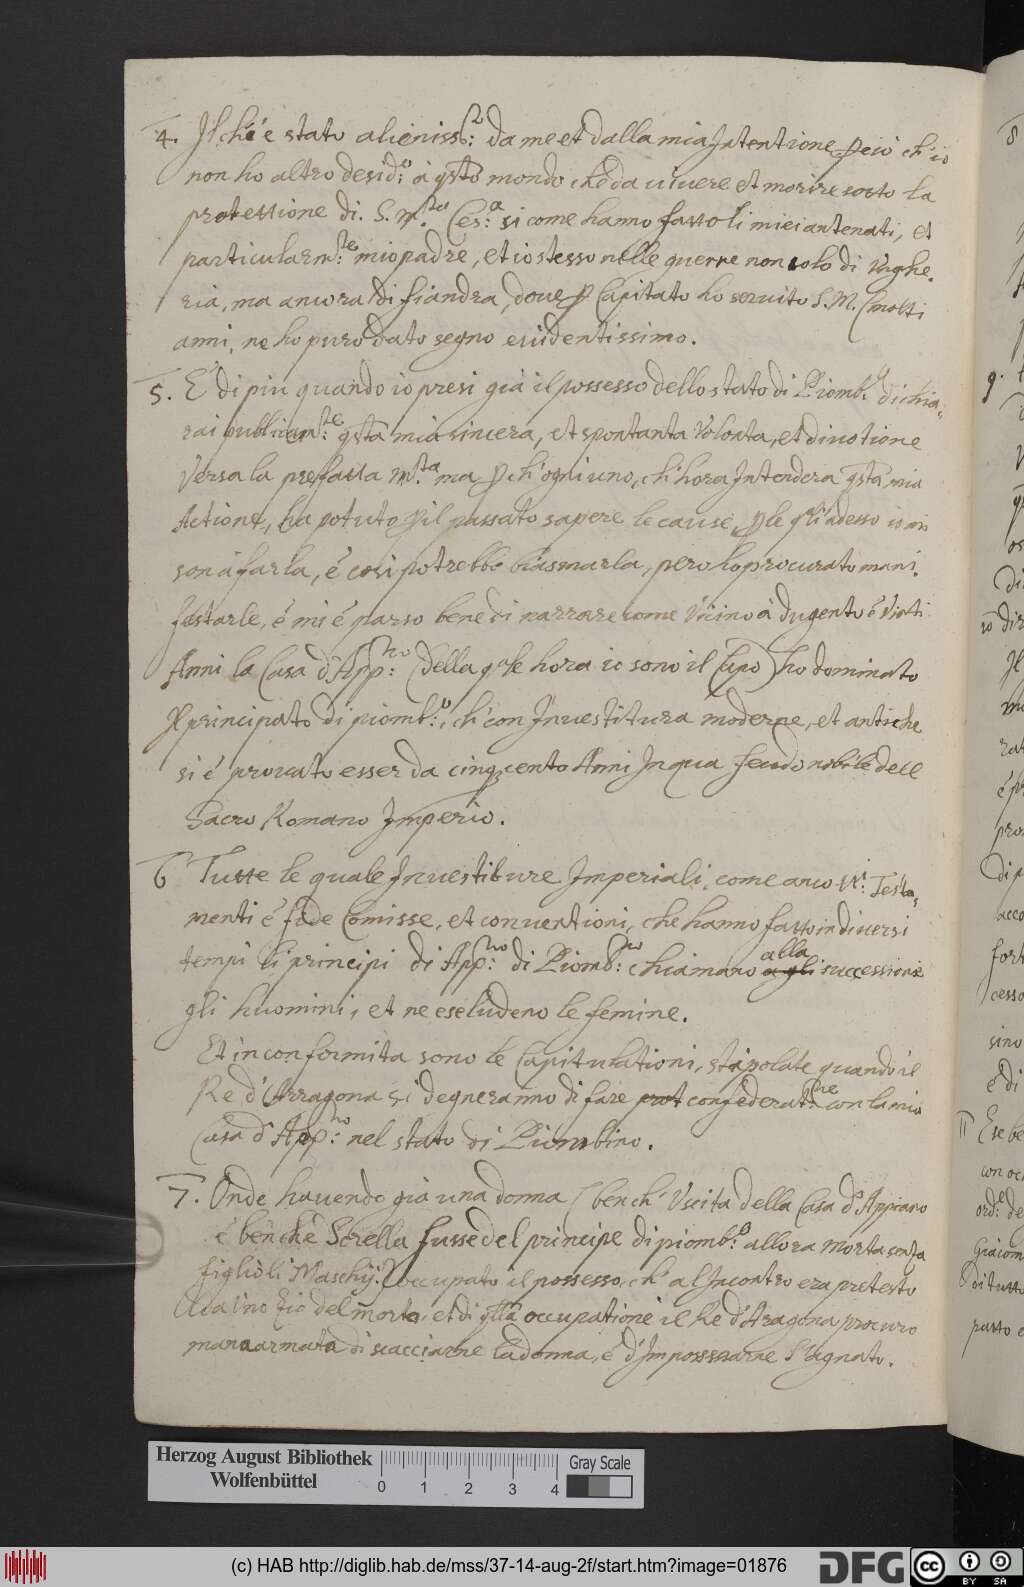 4. Il che è stato alieniss.o: da me et dalla mia Intentione, p ciò ch'io
non ho altro desid:o à qsto mondo che da viuere et morire sotto la
protettione di. S. M.ta Ces:a si come hanno fatto li miei antenati, et
particularm:te mio padre, et io stesso nelle guerre non solo di Vnghe,
ria, ma ancora di fiandra, doue p Capitato ho seruito S. M. Cmolti
anni, ne ho puro dato segno euidentissimo.
5. E' di piu quando io presi già il possesso dello stato di Piomb.o dichia,
rai publicam:te qsta mia sincera, et spontanta Volonta, et diuotione
Versa la prefatta M.ta ma p ch'ogniuno, ch'hora Intendera qsta mia
Actione, ha potuto p il passato sapere le cause, p le qli adesso io mi
son à farla, é cosi potrebbe biasmarla, pero ho procurato mani,
festarle, é mi é parso bene di narrare come Vicino à dugento é Vinti
Anni la Casa d'App:no (della qale hora io sono il Capo) ho dominato
Il principato di piomb:o, ch'con Inuestitura moderne, et antiche
si é prouato esser da cinqcento Anni In qua feudo nobile dell
Sacro Romano Imperio.
6 Tutte le quale Inuestiture Imperiali, come anco Testa,
menti é fide Comisse, et conuentioni, che hanno fatto in diuersi
tempi li principi di App:no di Piomb:no chiamano agli alla successione
gli huomini, et ne escludeno le femine.
Et in conformita sono le Capitulationi, stipolate quando il
Re d'Arragona si degneranno di fare prot confederat:ne con la mia
Casa d'App:no nel stato di Piombino.
7. Onde hauendo già una donna (bench' Vscita della Casa d'Appiano
é benche Sorella fusse del principe di piomb:o allora morta senza
figlioli Maschij.) occupato il possesso, ch'al Incontro era pretesto
da Vno Zio del morto, et di qlla occupatione il Re d'Aragona procuro
mano armata di scacciarne la donna, é d'Impossesarne
Herzog August Bibliothek
Wolfenbüttel
0 1 2 3 4
Gray Scale
(c) HAB http://diglib.hab.de/mss/37-14-aug-2f/start.htm?image=01876
DFG
cc BY SA